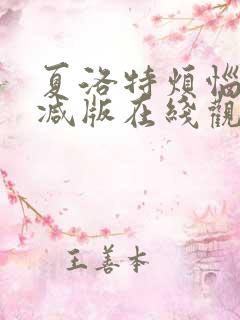 夏洛特煩惱
減版在綫觀
王善本